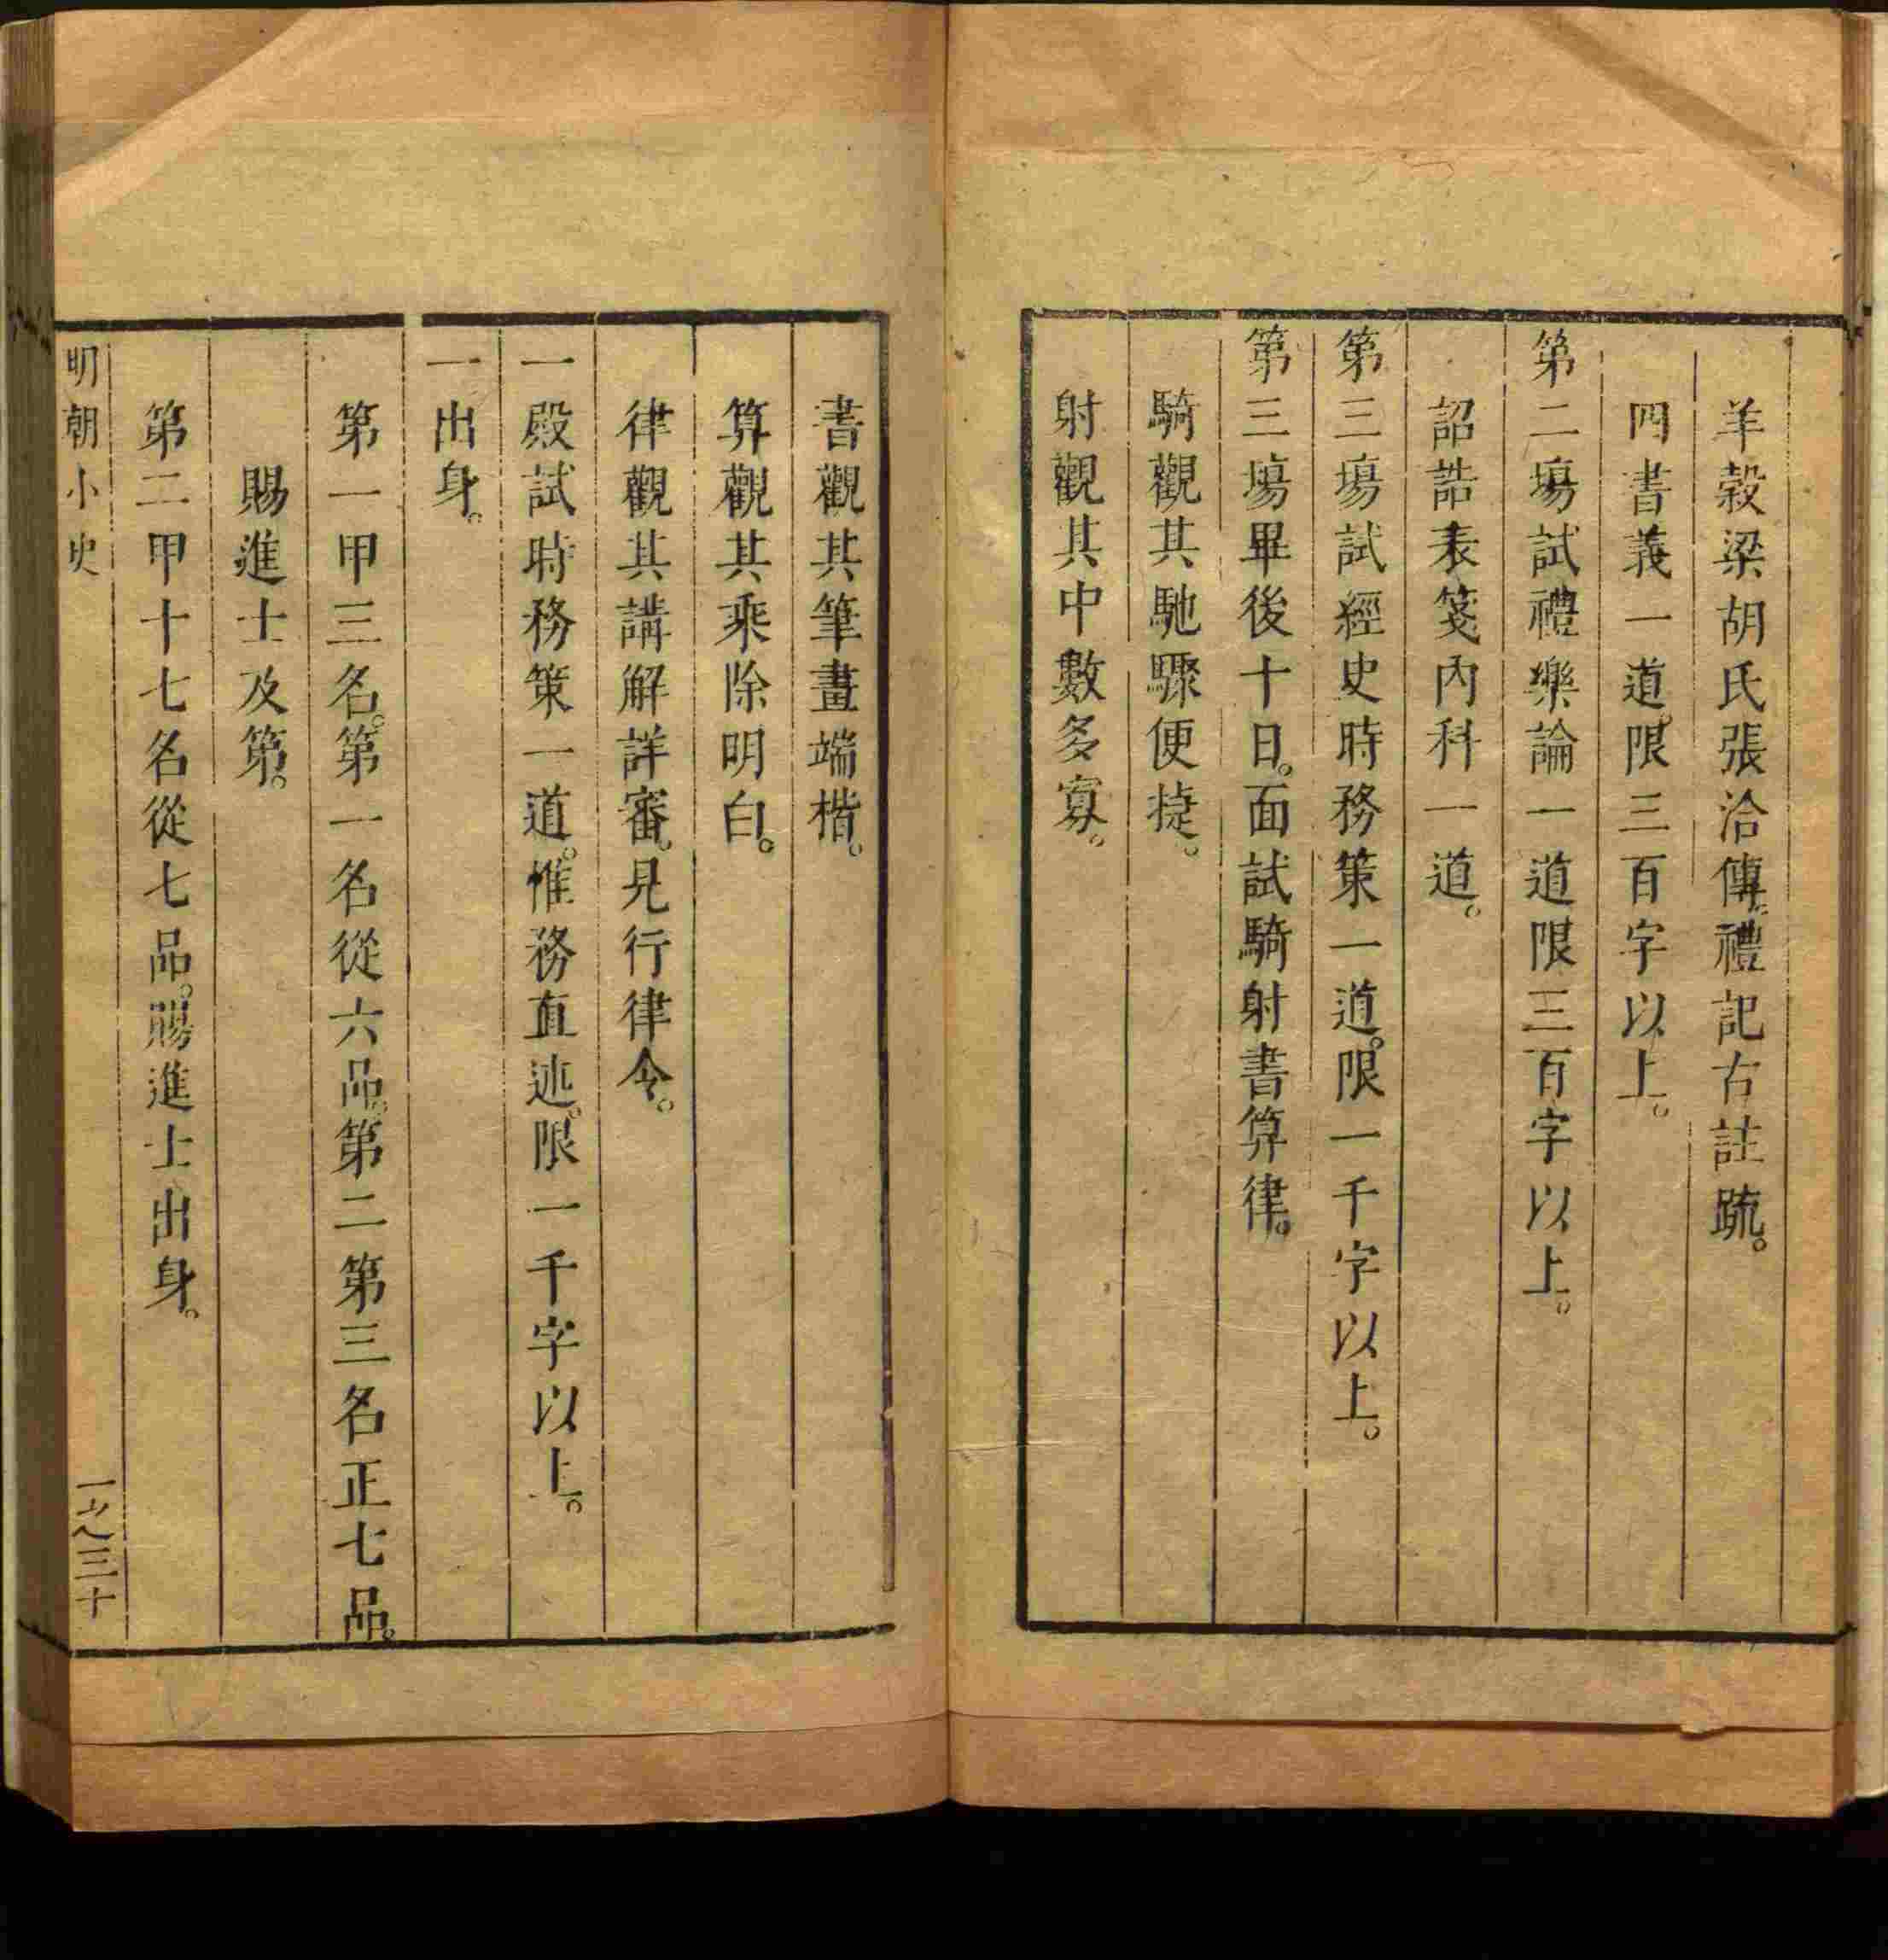 羊穀梁胡氏張洽傳。禮記古註疏。
四書義一道。限三百字以上。
第二塲試禮樂論一道限三百字以上。
詔誥表箋內科一道。
第三塲試經史時務策一道。限一千字以上。
第三塲畢後十日。面試騎射書算律。
騎觀其馳驟便捷。
射觀其中數多寡。
書觀其筆畫端楷。
算觀其乘除明白。
律觀其講解詳審。見行律令。
一殿試時務策一道。惟務直述。限一千字以上。
一出身。
第一甲三名。第一名從六品。第二第三名正七品。
賜進士及第。
第二甲十七名從七品。賜進士出身。
明朝小史
一之三十